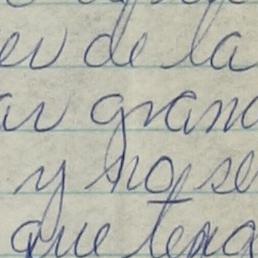 er de la
ar gran
y no se
que teng